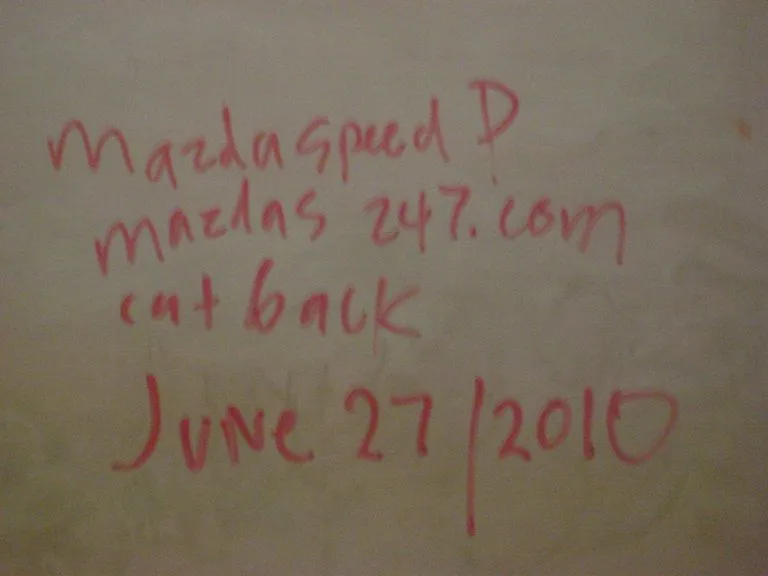 Mazdaspeed P
mazdas 247.com
cat back
JUNe 27/2010